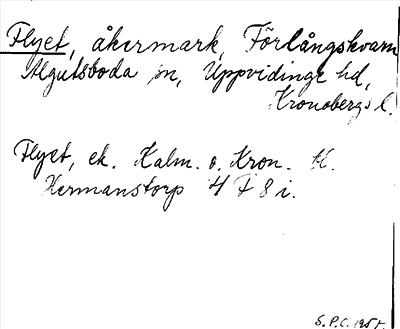 Flyet, åkermark, Förlångskvarn
Algutsboda sn, Uppvidinge hd,
Kronobergs l.
Flyet, ek. Kalm. o. Kron. K.
Hermanstorp 4 F 8 i.
S.P.C. 1955.